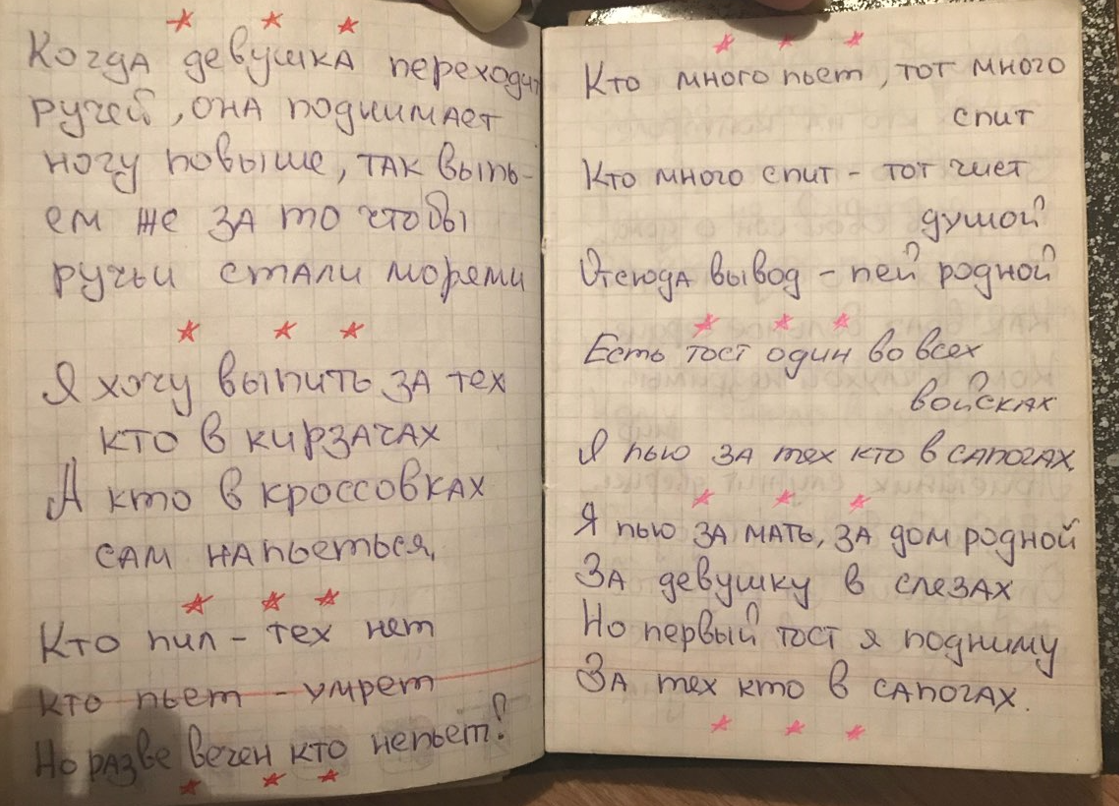 Когда девушка переходит
ручей, она поднимает
ногу повыше, так выпь-
ем же за то чтобы
ручьи стали морями
Я хочу выпить за тех
кто в кирзачах
А кто в кроссовках
сам напьеться,
Кто пил - тех нет
кто пьет - умрет
Но разве вечен кто непьет?
Кто много пьет, тот много
спит
Кто много спит - тот чист
душой
Отсюда вывод - пей родной
Есть тост один во всех
войсках
Я пью за тех кто в сапогах
Я пью за мать, за дом родной
За девушку в слезах
Но первый тост я подниму
За тех кто в сапогах.